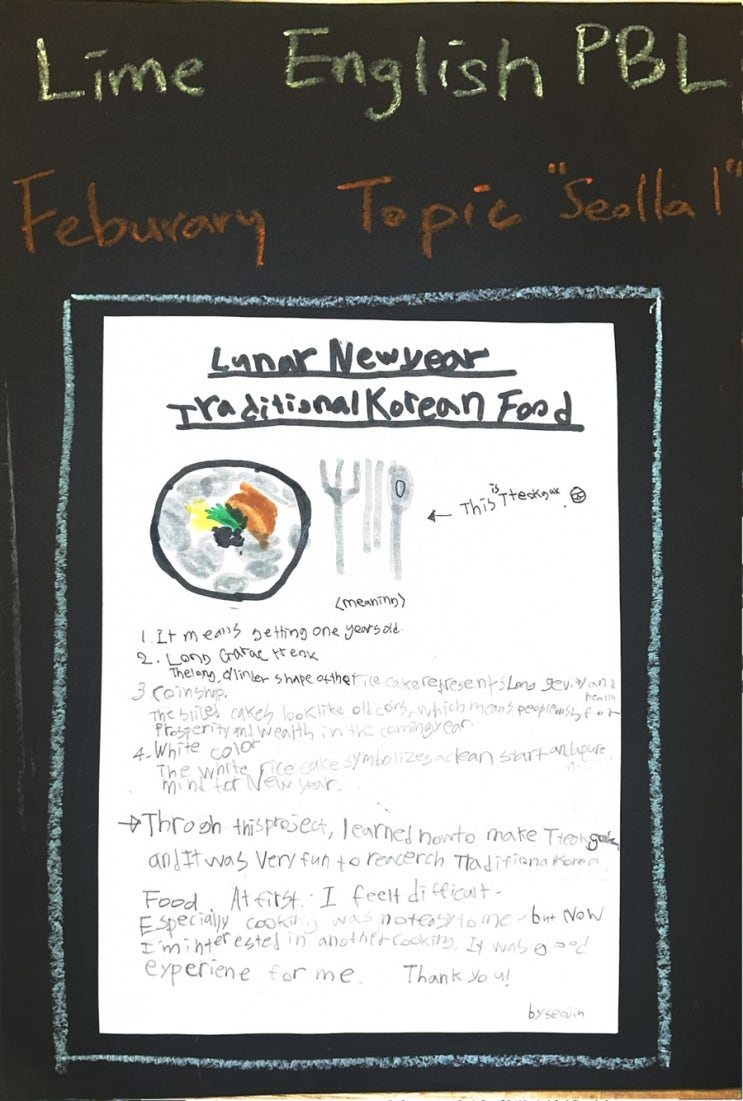 Lime English PBL
Feburary Topic "Seollal"
Lunar Newyear
Traditional Korean Food
← This is Tteokguk.
<meaninn>
1. It means getting one years old.
2. Long Garae tteok
The long, cilinder shape of the rice cake represents Long gevity and health
3 coinship.
The sliced cakes look like old coins, which means people wish for
Prosperity and wealth in the coming year.
4. White color
The white rice cake symbolizes a clean start and a pure
mind for New year.
→ Throgh this project, I learned how to make Tteokguk
and It was Very fun to reacerch Traditional Korean
Food. At first. I feelt difficult.
Especially cooking was not easy to me - but Now
I'm interested in another cooking. It was good
experiene for me. Thank you!
by seojin